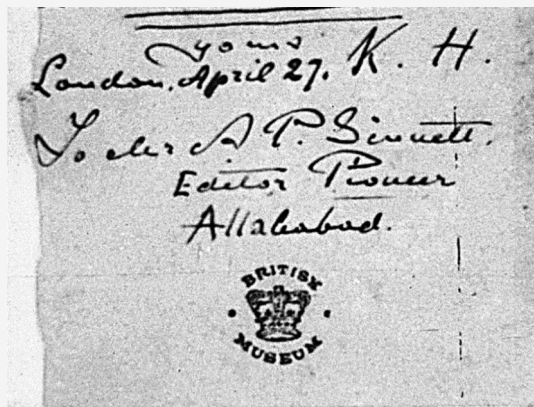 yours
London, April 27. K. H.
To Mr A. P. Sinnett.
Editor Pioneer
Allahabad.
BRITISH
MUSEUM